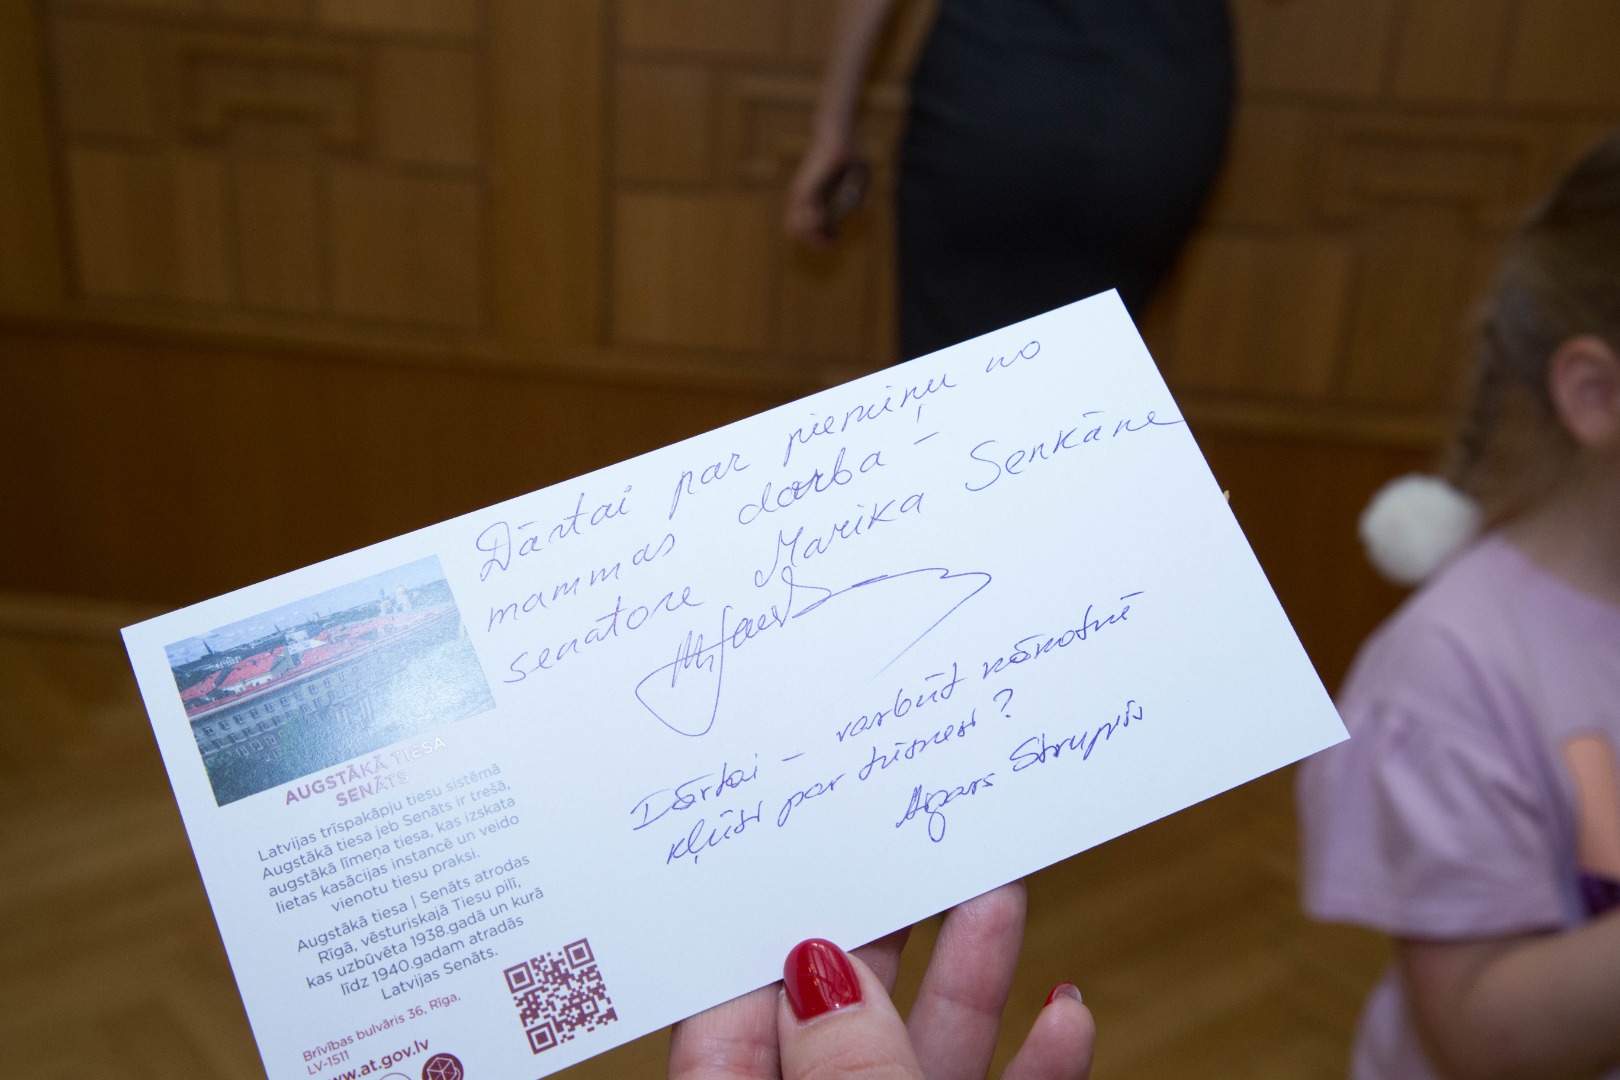 Dārtai par piemiņu no
mammas darba –
senatore Marika Senkāne
Dārtai – varbūt nākotnē
kļūsi par tiesnesi?
Aigars Strupišs
AUGSTĀKĀ TIESA
SENĀTS
Latvijas trīspakāpju tiesu sistēmā
Augstākā tiesa jeb Senāts ir trešā,
augstākā līmeņa tiesa, kas izskata
lietas kasācijas instancē un veido
vienotu tiesu praksi.
Augstākā tiesa | Senāts atrodas
Rīgā, vēsturiskajā Tiesu pilī,
kas uzbūvēta 1938.gadā un kurā
līdz 1940.gadam atradās
Latvijas Senāts.
Brīvības bulvāris 36, Rīga,
LV-1511
www.at.gov.lv